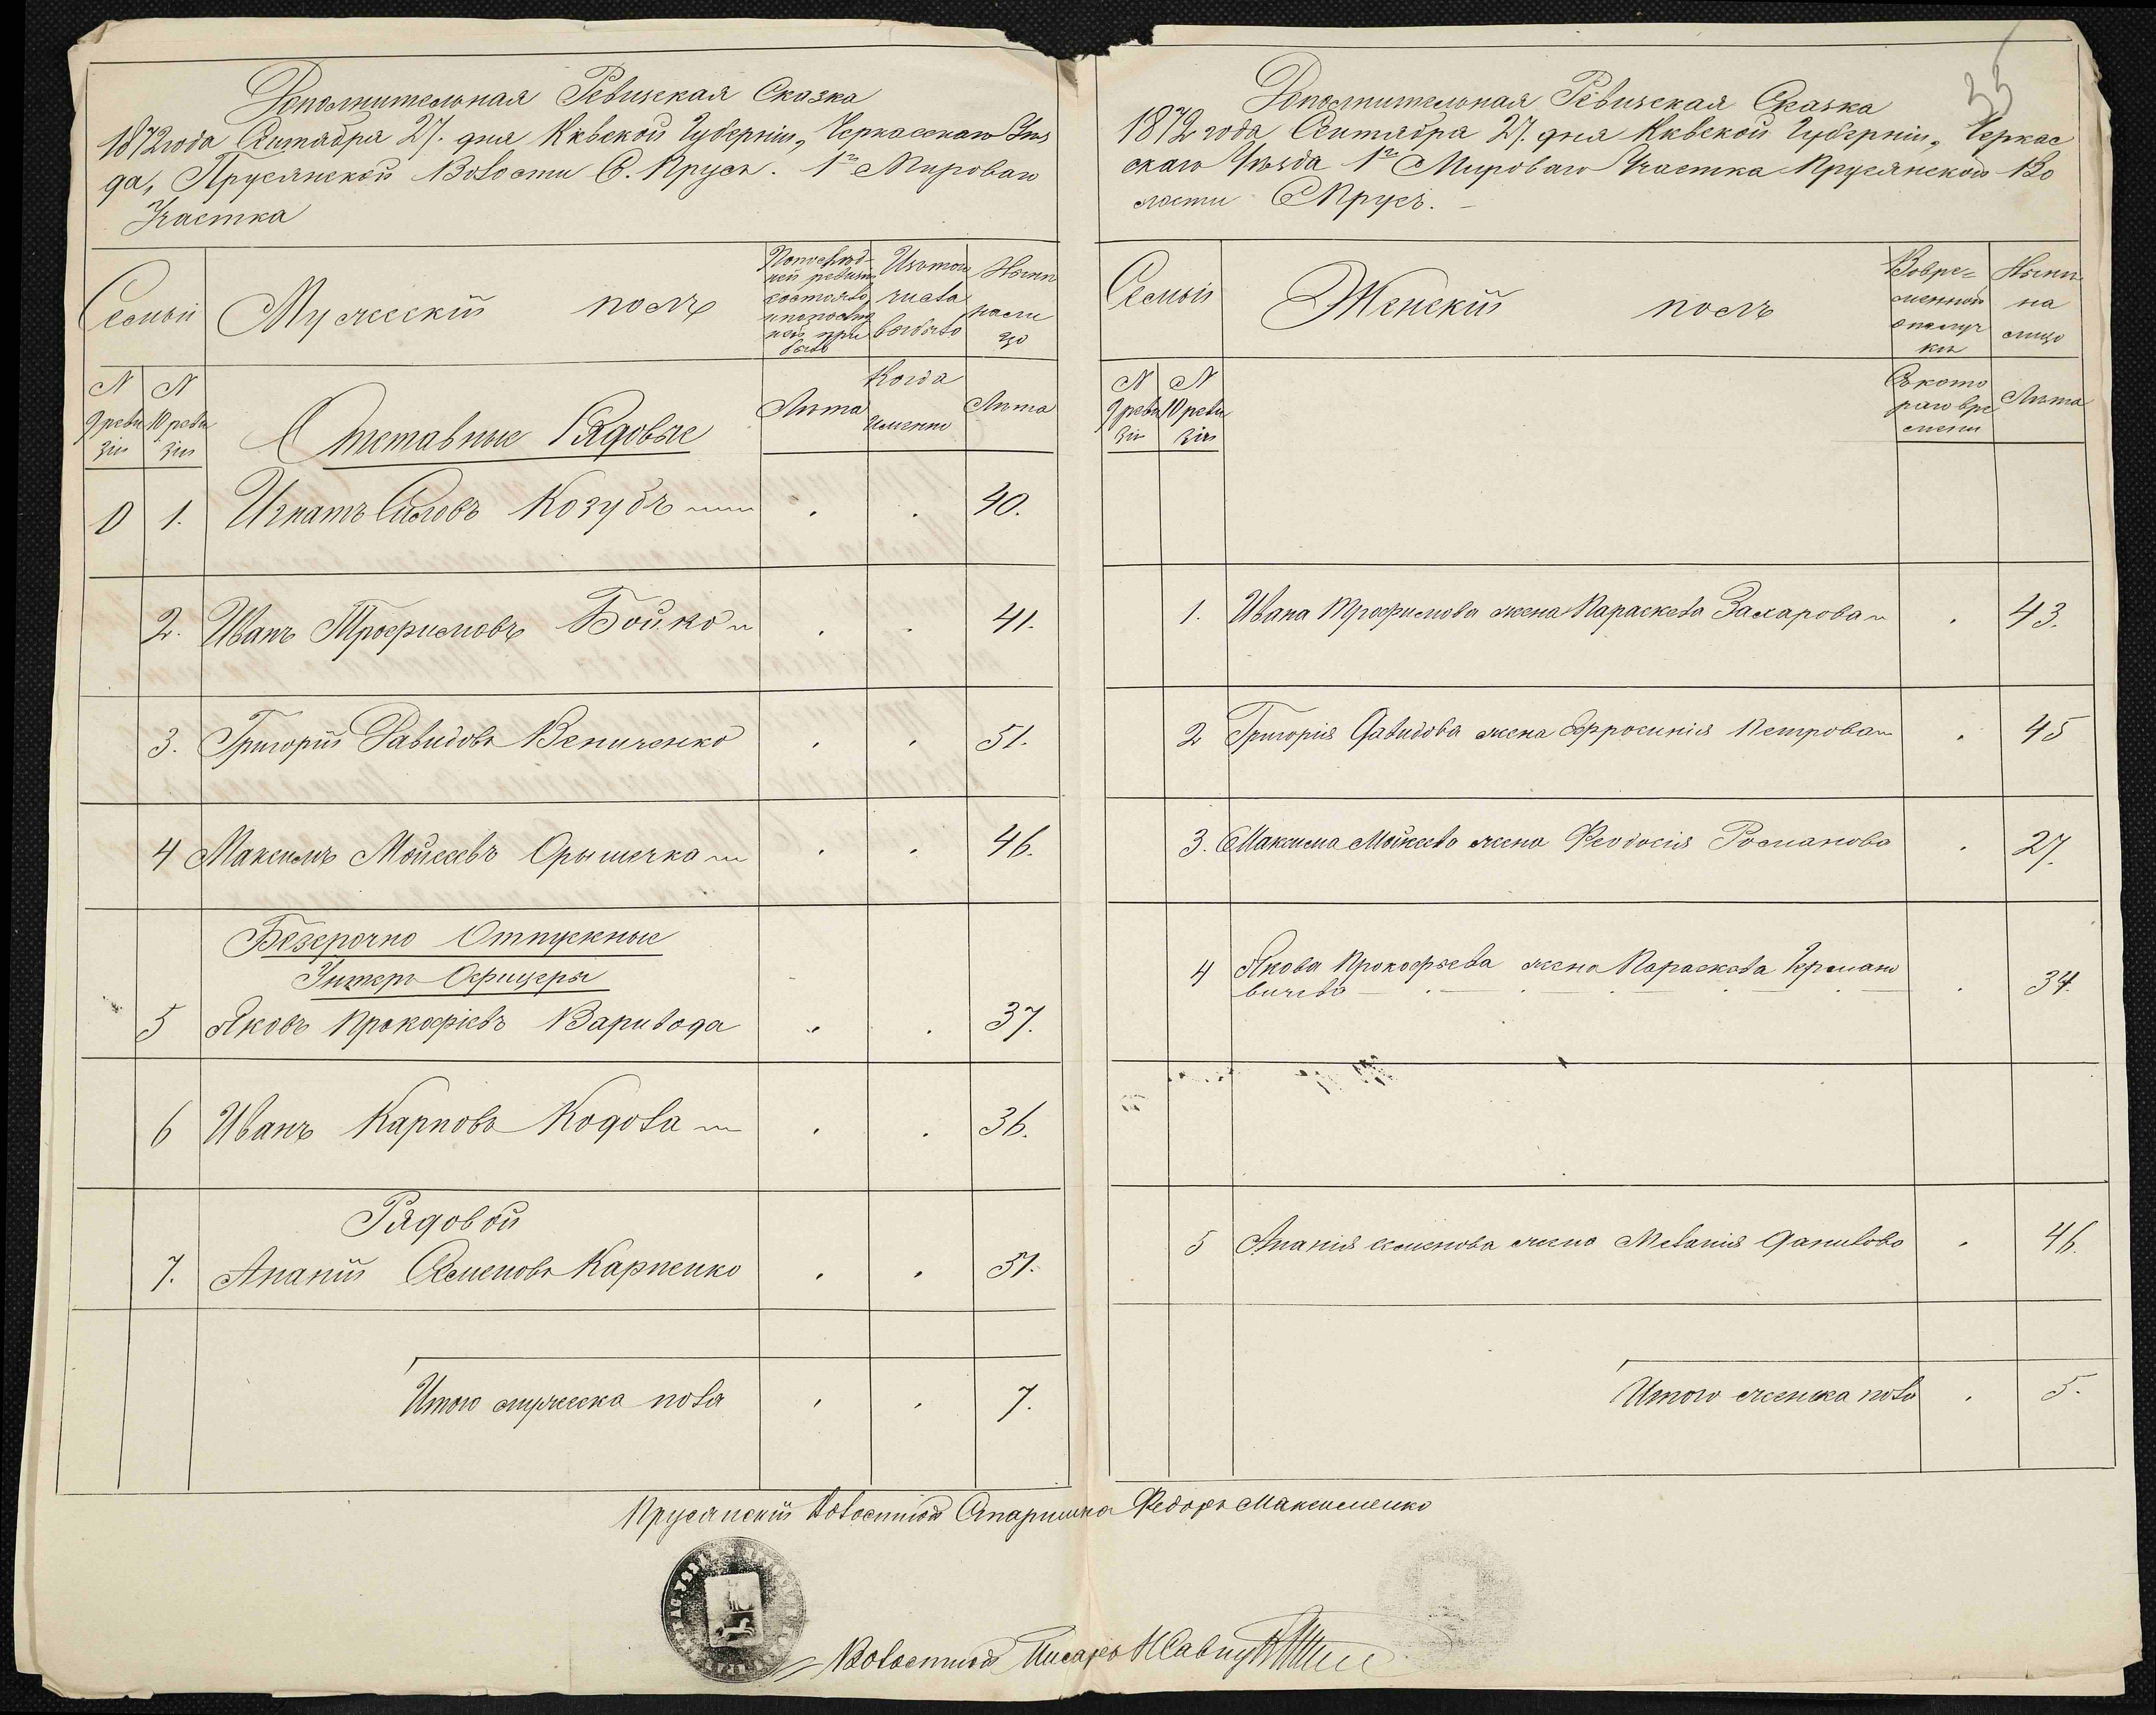 Дополнительная Ревизская Сказка
1872 года Сентября 27. дня Кіевской Губерніи, Черкасскаго Уѣз
да, Прусянской Волости С. Прусъ. 1го Мироваго
Участка
Семьи
Мужескій полъ
Попослѣд-
ней ревизіи
состояло
и
было
Изътого
числа
выбыло
Нынѣ
нали
цо
N
9 реви
зіи
N
10 реви
зіи
Отставные Рядовые
Лѣта
Когда
именно
Лѣта
0 1. Игнатъ Силовъ Козубъ 40.
2. Иванъ Трофимовъ Бойко 41.
3. Григорій Давидовъ Величенко 51.
4 Максимъ Мойсеевъ Орышечка 46.
Безсрочно Отпускные
Унтеръ Офицеры
5 Яковъ Прокофіевъ Варивода 37.
6 Иванъ Карповъ Кодола 36.
Рядовой
7. Ананій Семеновъ Карпенко 51.
Итого мужеска пола 7.
35
Дополнительная Ревизская Сказка
1872 года Сентября 27. дня Кіевской Губерніи, Черкас
скаго Уѣзда 1го Мироваго Участка Прусянской Во
лости С Прусъ.
Семьи
Женскій полъ
Вовре=
менной
отлуч
кѣ
Нынѣ
на
лицо
N
9 реви
зіи
N
10 реви
зіи
Съкото
раго вре
мени
Лѣта
1. Ивана Трофимова жена Параскева Захарова 43.
2 Григорія Давидова жена Ефросинія Петрова 45
3. Максима Мойсеева жена Феодосія Романова 27.
4 Якова Прокофьева жена Параскева Германо
вичева 34.
5 Ананія семенова жена Меланія Данилова 46.
Итого женска пола 5.
Прусянскій Волостной Старшина Федоръ Максименко
Волостной Писарь